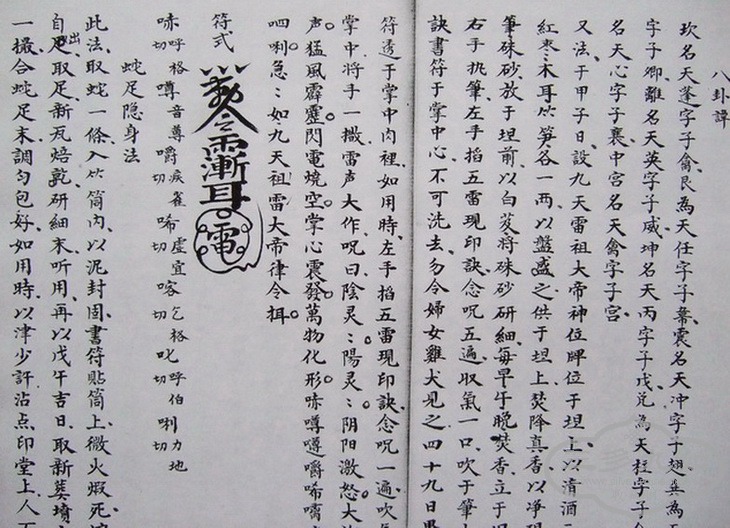 八卦諱
坎名天蓬字子禽艮為天任字子韋震名天冲字子翅巽為
字子卿離名天英字子威坤名天丙字子戊兑為天柱字子
名天心字子襄中宮名天禽字子宮
又法于甲子日設九天雷祖大帝神位牌位于坦上以清酒
紅枣木耳以笋各一两以盤盛之供于坦上焚降真香以净
筆硃砂放于坦前以白芨将硃砂研細每早午晚焚香立于
右手执筆左手掐五雷现印訣念呪五遍取氣一口吹于筆
訣書符于掌中心不可洗去勿令婦女雞犬見之四十九日
符透于掌中肉裡如用時左手掐五雷现印訣念呪一遍吹
掌中将手一撒雷声大作呪曰陰灵:陽灵:阴阳激怒大
声猛風霹靂閃電燒空掌心震發萬物化形哧噂噂嚼唏
呬唎急:如九天祖雷大帝律令揖
符式
哧呼格切噂音尊嚼疾雀切唏虚宜切喀乞格切叱呼伯切唎力地切
蛇足隐身法
此法取蛇一條入竹筒内以泥封固書符貼筒上微火煅死
自出足取足新瓦焙乾研細末听用再以戊午吉日取新葬墳
一撮合蛇足末調匀包好如用時以津少許沾点印堂上人